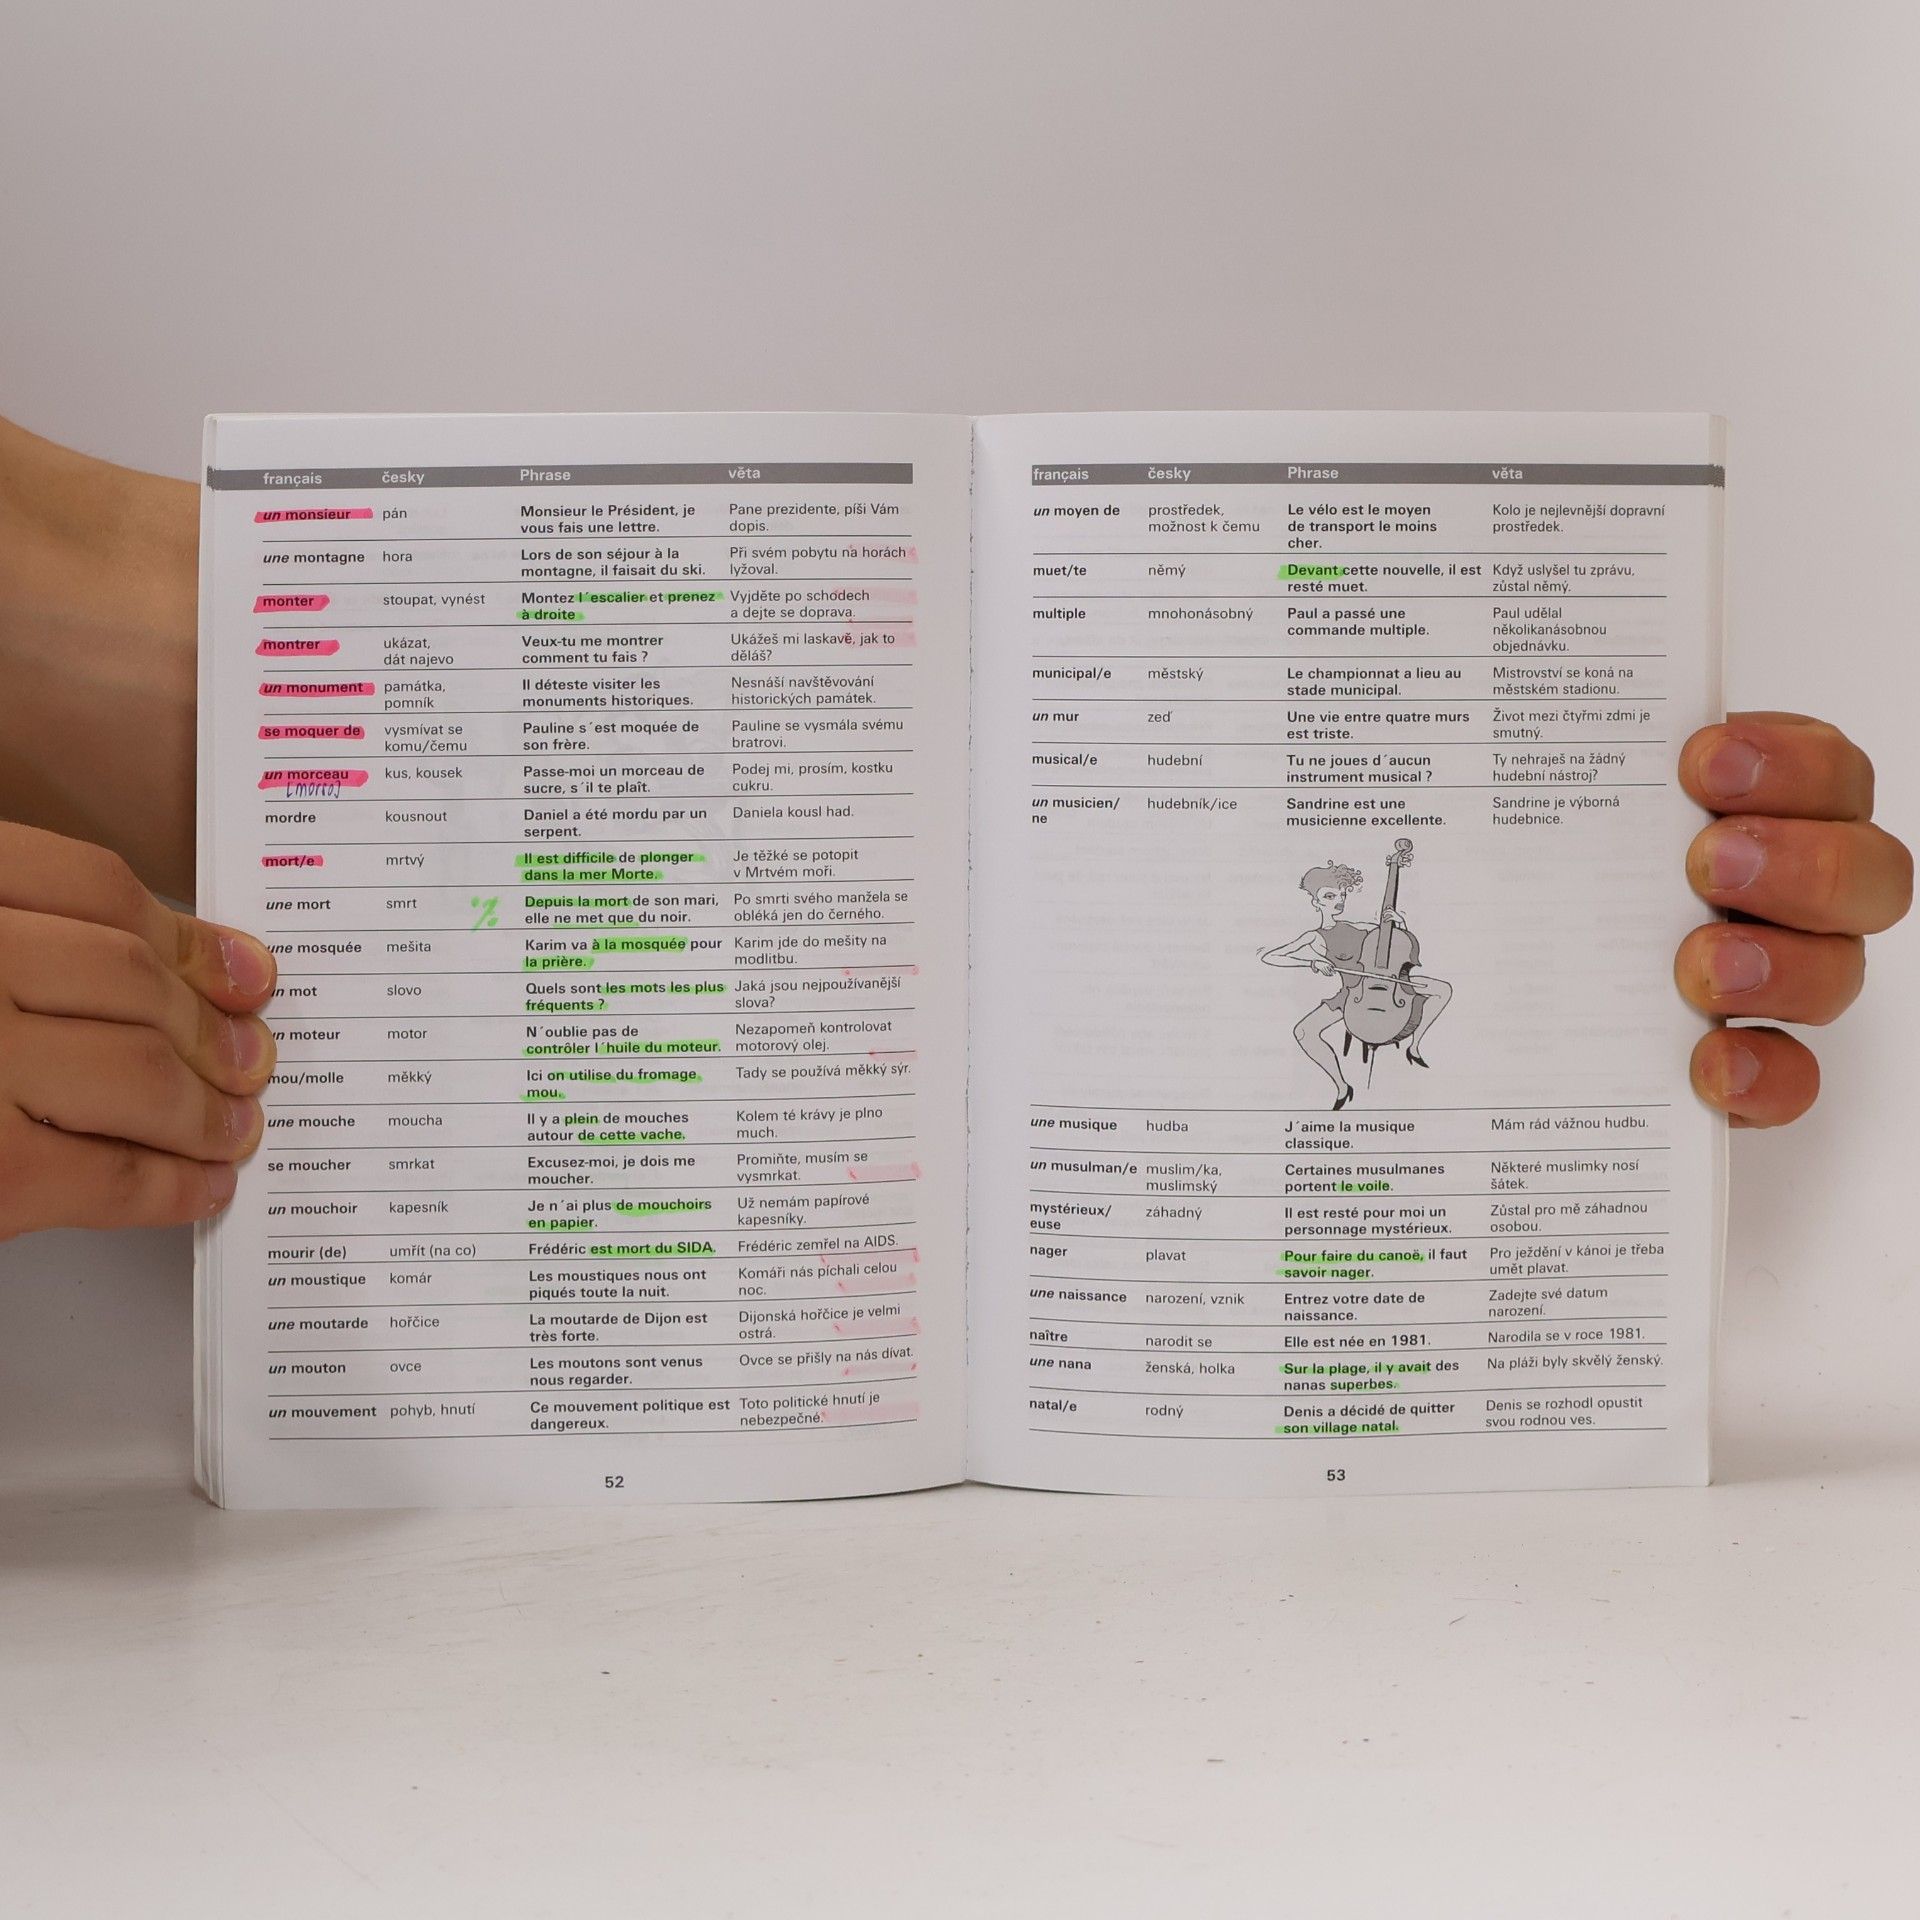 français česky Phrase věta
un monsieur pán Monsieur le Président, je Pane prezidente, píši Vám
vous fais une lettre. dopis.
une montagne hora Lors de son séjour à la Při svém pobytu na horách
montagne, il faisait du ski. lyžoval.
monter stoupat, vynést Montez l´escalier et prenez Vyjděte po schodech
à droite a dejte se doprava.
montrer ukázat, Veux-tu me montrer Ukážeš mi laskavě, jak to
dát najevo comment tu fais ? děláš?
un monument památka, Il déteste visiter les Nesnáší navštěvování
pomník monuments historiques. historických památek.
se moquer de vysmívat se Pauline s´est moquée de Pauline se vysmála svému
komu/čemu son frère. bratrovi.
un morceau kus, kousek Passe-moi un morceau de Podej mi, prosím, kostku
[morso] sucre, s´il te plaît. cukru.
mordre kousnout Daniel a été mordu par un Daniela kousl had.
serpent.
mort/e mrtvý Il est difficile de plonger Je těžké se potopit
dans la mer Morte. v Mrtvém moři.
une mort smrt Depuis la mort de son mari, Po smrti svého manžela se
elle ne met que du noir. obléká jen do černého.
une mosquée mešita Karim va à la mosquée pour Karim jde do mešity na
la prière. modlitbu.
un mot slovo Quels sont les mots les plus Jaká jsou nejpoužívanější
fréquents ? slova?
un moteur motor N´oublie pas de Nezapomeň kontrolovat
contrôler l´huile du moteur. motorový olej.
mou/molle měkký Ici on utilise du fromage Tady se používá měkký sýr.
mou.
une mouche moucha Il y a plein de mouches Kolem té krávy je plno
autour de cette vache. much.
se moucher smrkat Excusez-moi, je dois me Promiňte, musím se
moucher. vysmrkat.
un mouchoir kapesník Je n´ai plus de mouchoirs Už nemám papírové
en papier. kapesníky.
mourir (de) umřít (na co) Frédéric est mort du SIDA. Frédéric zemřel na AIDS.
un moustique komár Les moustiques nous ont Komáři nás píchali celou
piqués toute la nuit. noc.
une moutarde hořčice La moutarde de Dijon est Dijonská hořčice je velmi
très forte. ostrá.
un mouton ovce Les moutons sont venus Ovce se přišly na nás dívat.
nous regarder.
un mouvement pohyb, hnutí Ce mouvement politique est Toto politické hnutí je
dangereux. nebezpečné.
52
français česky Phrase věta
un moyen de prostředek, Le vélo est le moyen Kolo je nejlevnější dopravní
možnost k čemu de transport le moins prostředek.
cher.
muet/te němý Devant cette nouvelle, il est Když uslyšel tu zprávu,
resté muet. zůstal němý.
multiple mnohonásobný Paul a passé une Paul udělal
commande multiple. několikanásobnou
objednávku.
municipal/e městský Le championnat a lieu au Mistrovství se koná na
stade municipal. městském stadionu.
un mur zeď Une vie entre quatre murs Život mezi čtyřmi zdmi je
est triste. smutný.
musical/e hudební Tu ne joues d´aucun Ty nehraješ na žádný
instrument musical ? hudební nástroj?
un musicien/ hudebník/ice Sandrine est une Sandrine je výborná
ne musicienne excellente. hudebnice.
une musique hudba J´aime la musique Mám rád vážnou hudbu.
classique.
un musulman/e muslim/ka, Certaines musulmanes Některé muslimky nosí
muslimský portent le voile. šátek.
mystérieux/ záhadný Il est resté pour moi un Zůstal pro mě záhadnou
euse personnage mystérieux. osobou.
nager plavat Pour faire du canoë, il faut Pro ježdění v kánoi je třeba
savoir nager. umět plavat.
une naissance narození, vznik Entrez votre date de Zadejte své datum
naissance. narození.
naître narodit se Elle est née en 1981. Narodila se v roce 1981.
une nana ženská, holka Sur la plage, il y avait des Na pláži byly skvělý ženský.
nanas superbes.
natal/e rodný Denis a décidé de quitter Denis se rozhodl opustit
son village natal. svou rodnou ves.
53